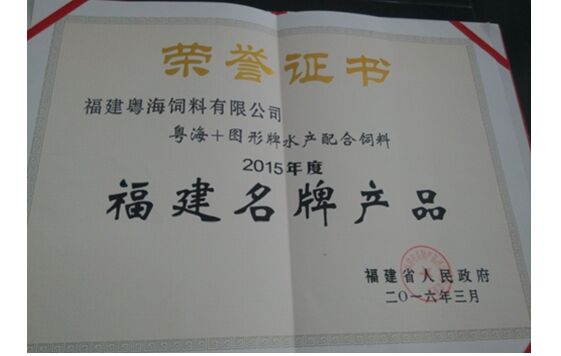 荣誉证书
福建粤海饲料有限公司
粤海+图形牌水产配合饲料
2015年度
福建名牌产品
福建省人民政府
二〇一六年三月